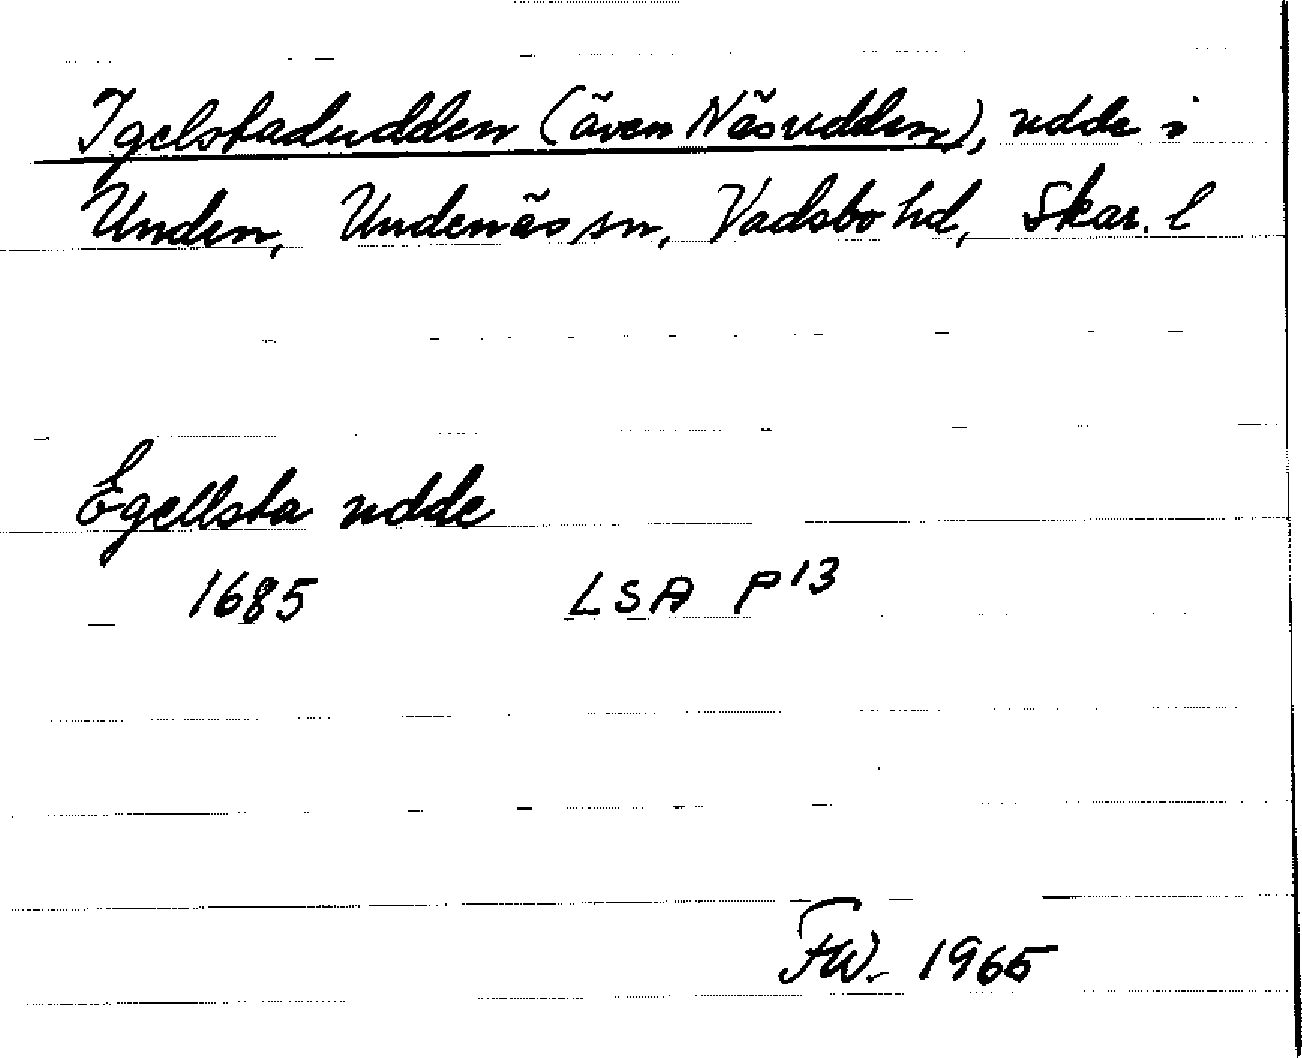 Igelstadudden (även Näsudden), udde i
Unden, Undenäs sn, Vadsbo hd, Skar. l
Egellsta udde
1685 LSA P 13
FW. 1965